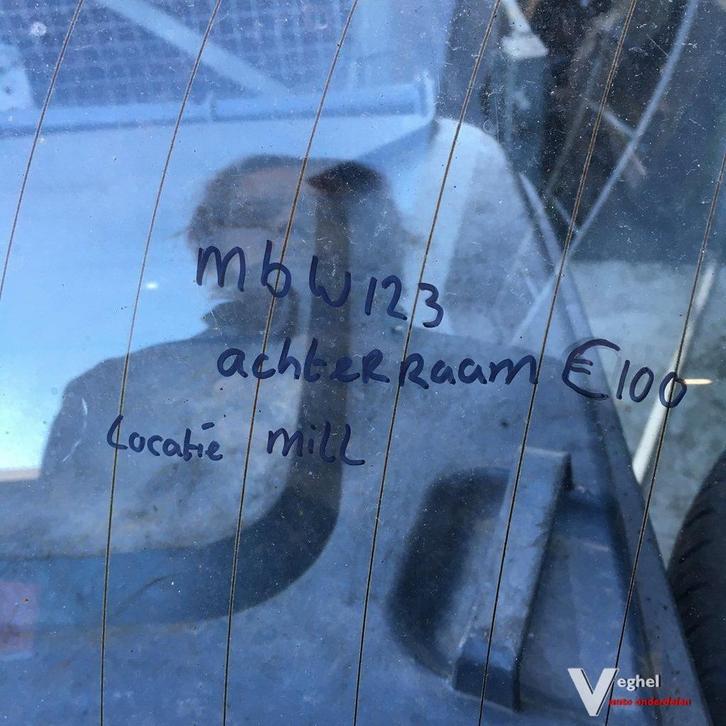 mbW123
achterraam €100
Locatie mill
Veghel
auto onderdelen